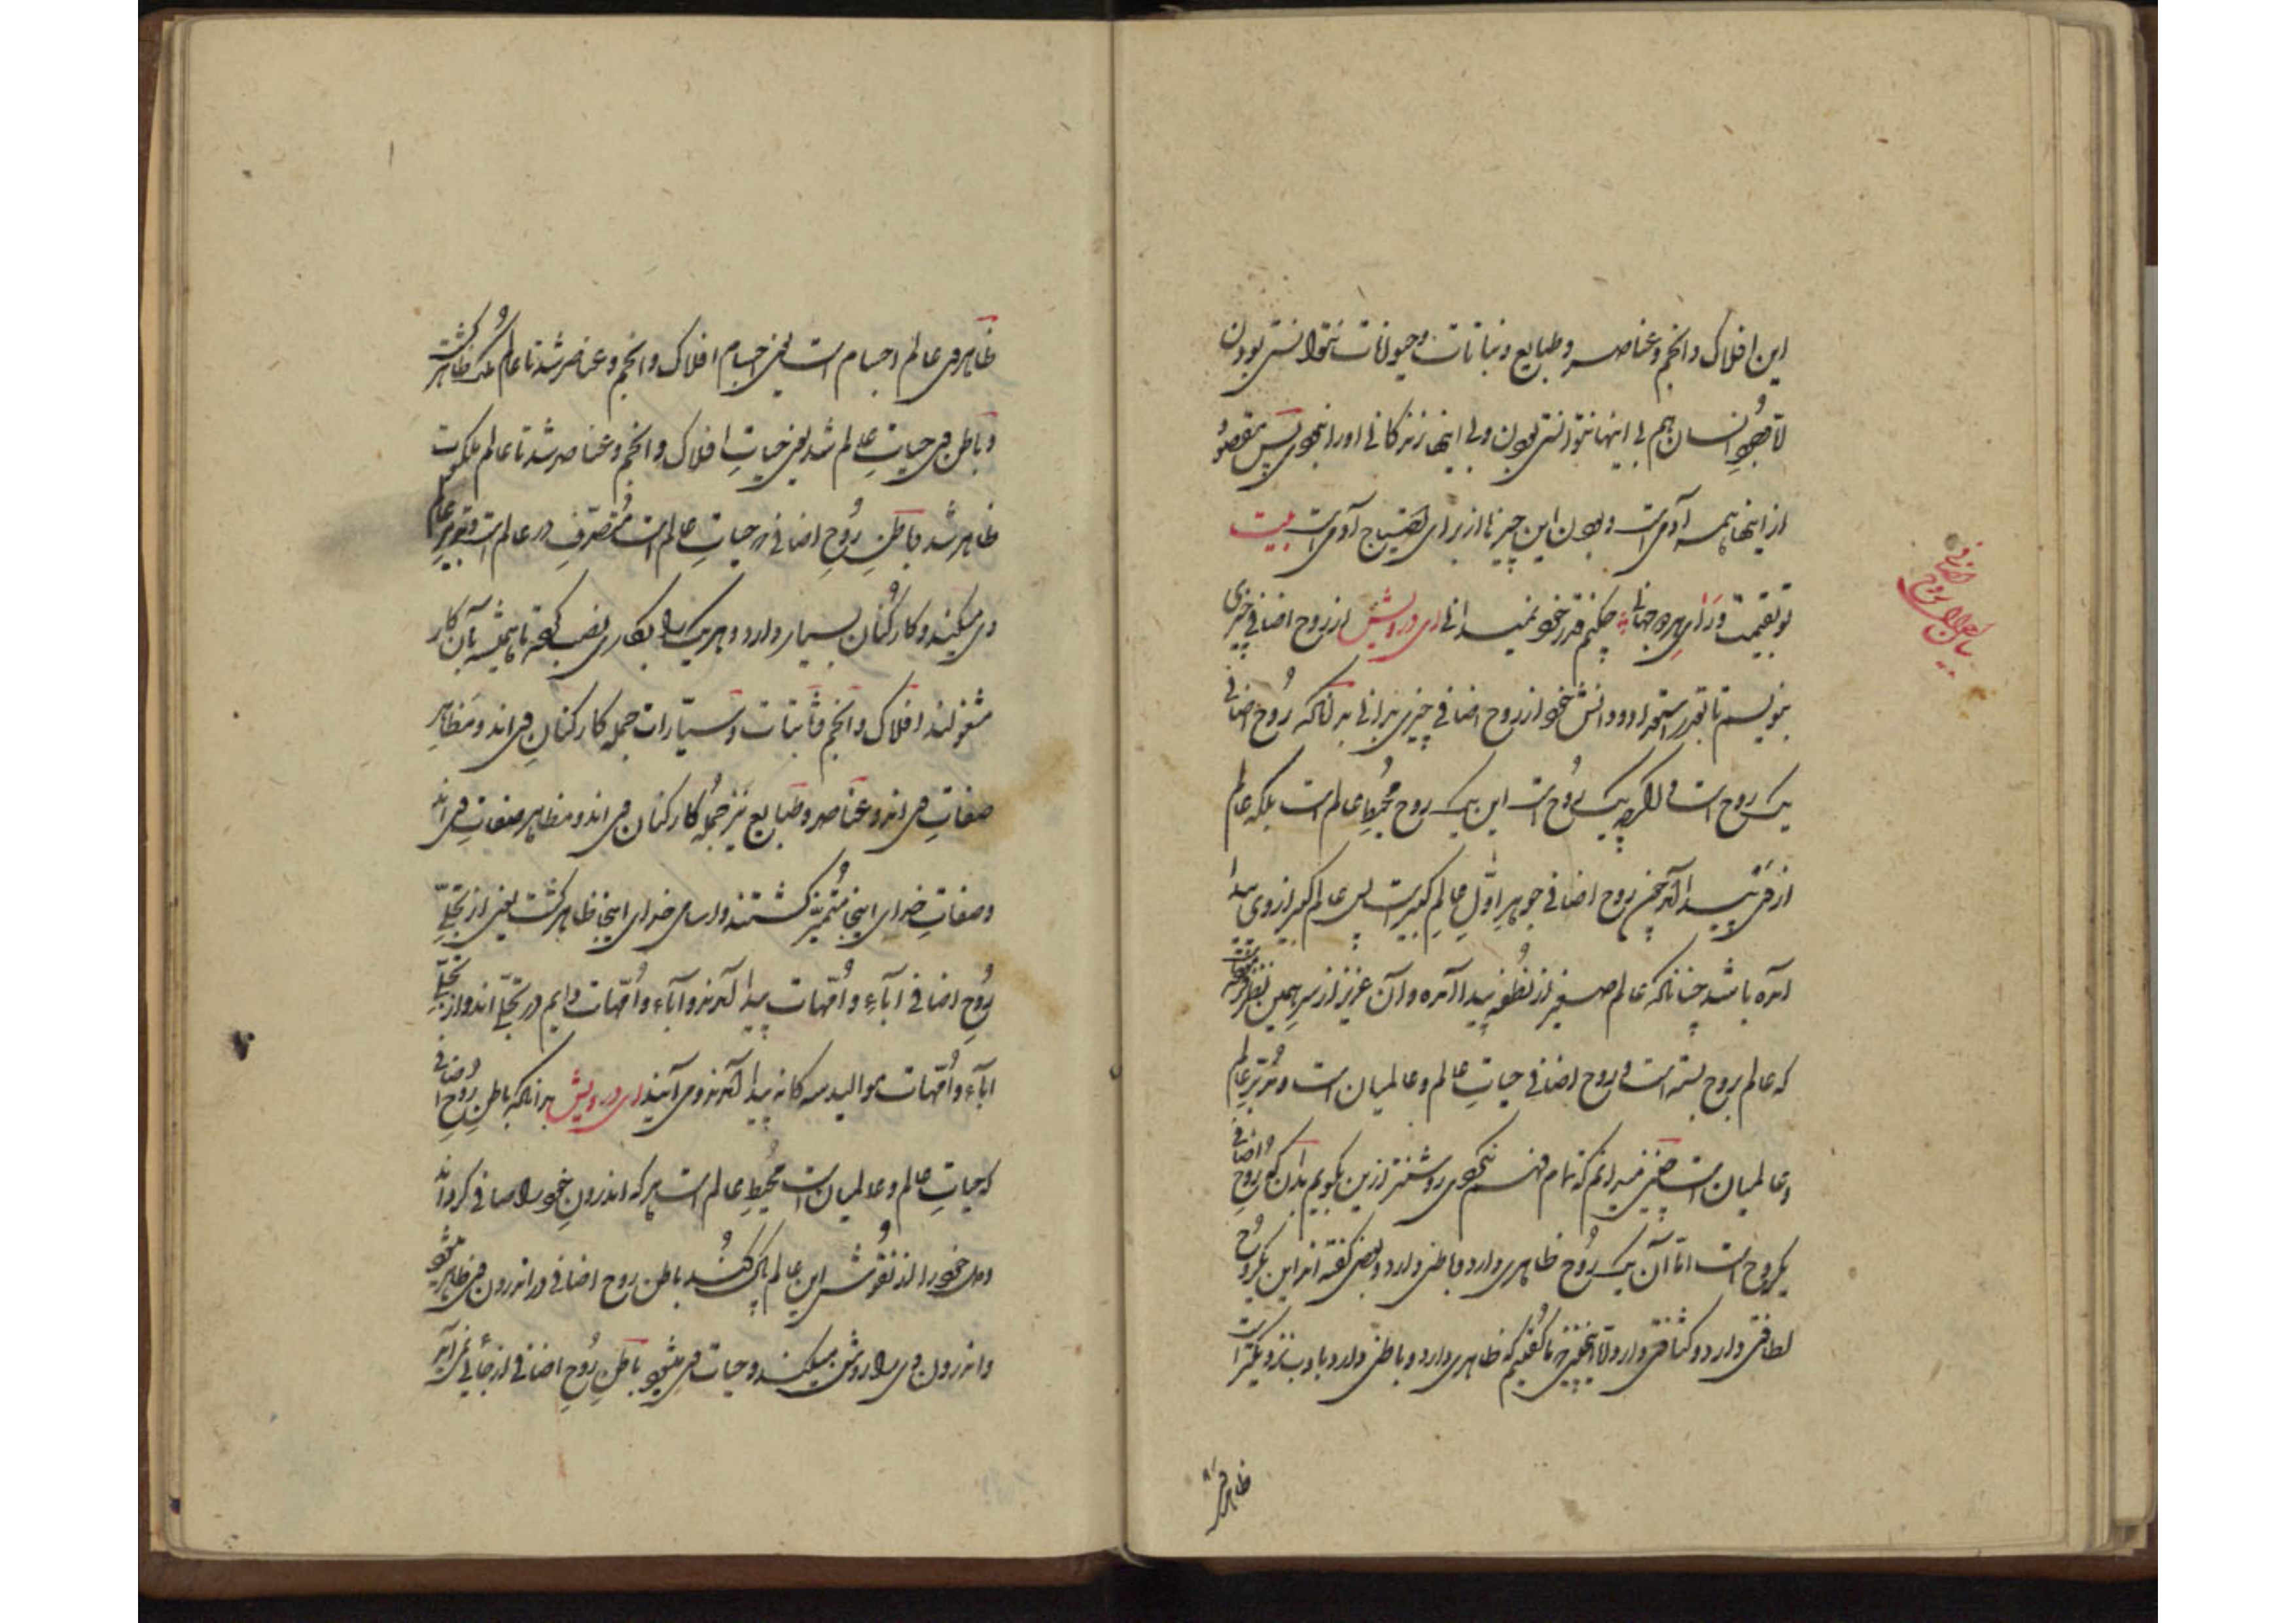 این افلاک و انجم و عناصر و طبایع و نباتات و حیوانات نتوانستی بودن
اما وجود انسان هم بی اینها نتوانستی بودن و بی اینها زندگانی او را نبودی پس مقصود
از اینها همه آدمی است و بودن این چیزها از برای احتیاج آدمی است بیت
تو بقیمت ورای هر دو جهانی چکنم قدر خود نمیدانی ای درویش از روح اضافی چیزی
بنویسم تا بقدر استعداد و دانش خود از روح اضافی چیزی بدانی بدانکه روح اضافی
یک روح است و اگرچه یک روح است این یک روح محیط عالم است بلکه عالم
از وی پیدا آمد چون روح اضافی جوهر اول عالم کبیر است پس عالم کبیر از وی پیدا
آمده باشد چنانکه عالم صغیر از نطفه پیدا آمده و آن عزیز از سر همین نظر گفته است
که عالم بروح بسته است و روح اضافی حیات عالم و عالمیان است و مدبر عالم
و عالمیان است چنین میدانم که تمام فهم نکردی روشنتر ازین بگویم بدان که روح اضافی
یک روح است اما آن یک روح ظاهری دارد و باطنی دارد و بعضی گفته اند این یک روح
لطافتی دارد و کثافتی دارد و ما گفتیم که ظاهری دارد و باطنی دارد و بادب نزدیکتر است
بیان روح اضافی
ظاهر وی
ظاهر وی عالم اجسام است یعنی اجسام افلاک و انجم و عناصر شد تا عالم ملک ظاهر گشت
و باطن وی حیات عالم شد یعنی حیات افلاک و انجم و عناصر شد تا عالم ملکوت
ظاهر شد باطن روح اضافی که حیات عالم است متصرف در عالم است و تدبیر عالم
وی میکند و کارکنان بسیار دارد و هر یک را بکاری نصب کرده تا همیشه بآن کار
مشغولند افلاک و انجم و ثابتات و سیارات جمله کارکنان وی اند و مظاهر
صفات وی اند و عناصر و طبایع نیز جمله کارکنان وی اند و مظاهر صفات وی اند
و صفات خدای اینجا متمیز گشتند و اسامی خدای اینجا ظاهر گشت یعنی از تجلی
روح اضافی آباء و امهات پیدا آمدند و آباء و امهات دایم در تجلی اند و از تجلی
آباء و امهات موالید سه کانه پیدا آمدند و می آیند ای درویش بدانکه باطن روح اضافی
که حیات عالم و عالمیان است محیط عالم است هر که اندرون خود را صافی کرداند
و دل خود را از نقوش این عالم پاک کند باطن روح اضافی در اندرون وی ظاهر شود
و اندرون وی را روشن میکند و حیات وی میشود باطن روح اضافی از جائی نمی آید